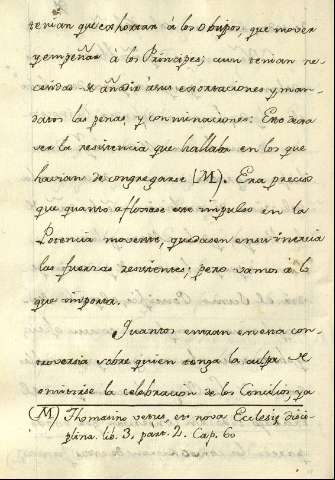 tenian que exhortar á los Obispos, que mover
y empeñar á los Principes; aun tenian ne-
cesidad de añadir á sus exortaciones y man-
datos las penas y conminaciones: Era
ser la resistencia que hallaba en los que
havian de congregarse (M). Era preciso
que quanto afloxase este impulso en la
Potencia movente, quedasen en su inercia
las fuerzas resistentes; pero vamos á lo
que importa.
Quantos entran en esta con-
troversia sobre quien tenga la culpa de
omitirse la celebracion de los Concilios, ya
(M) Thomasino vetus, et nova Ecclesię disci-
plina. lib. 3, part. 2. Cap. 60